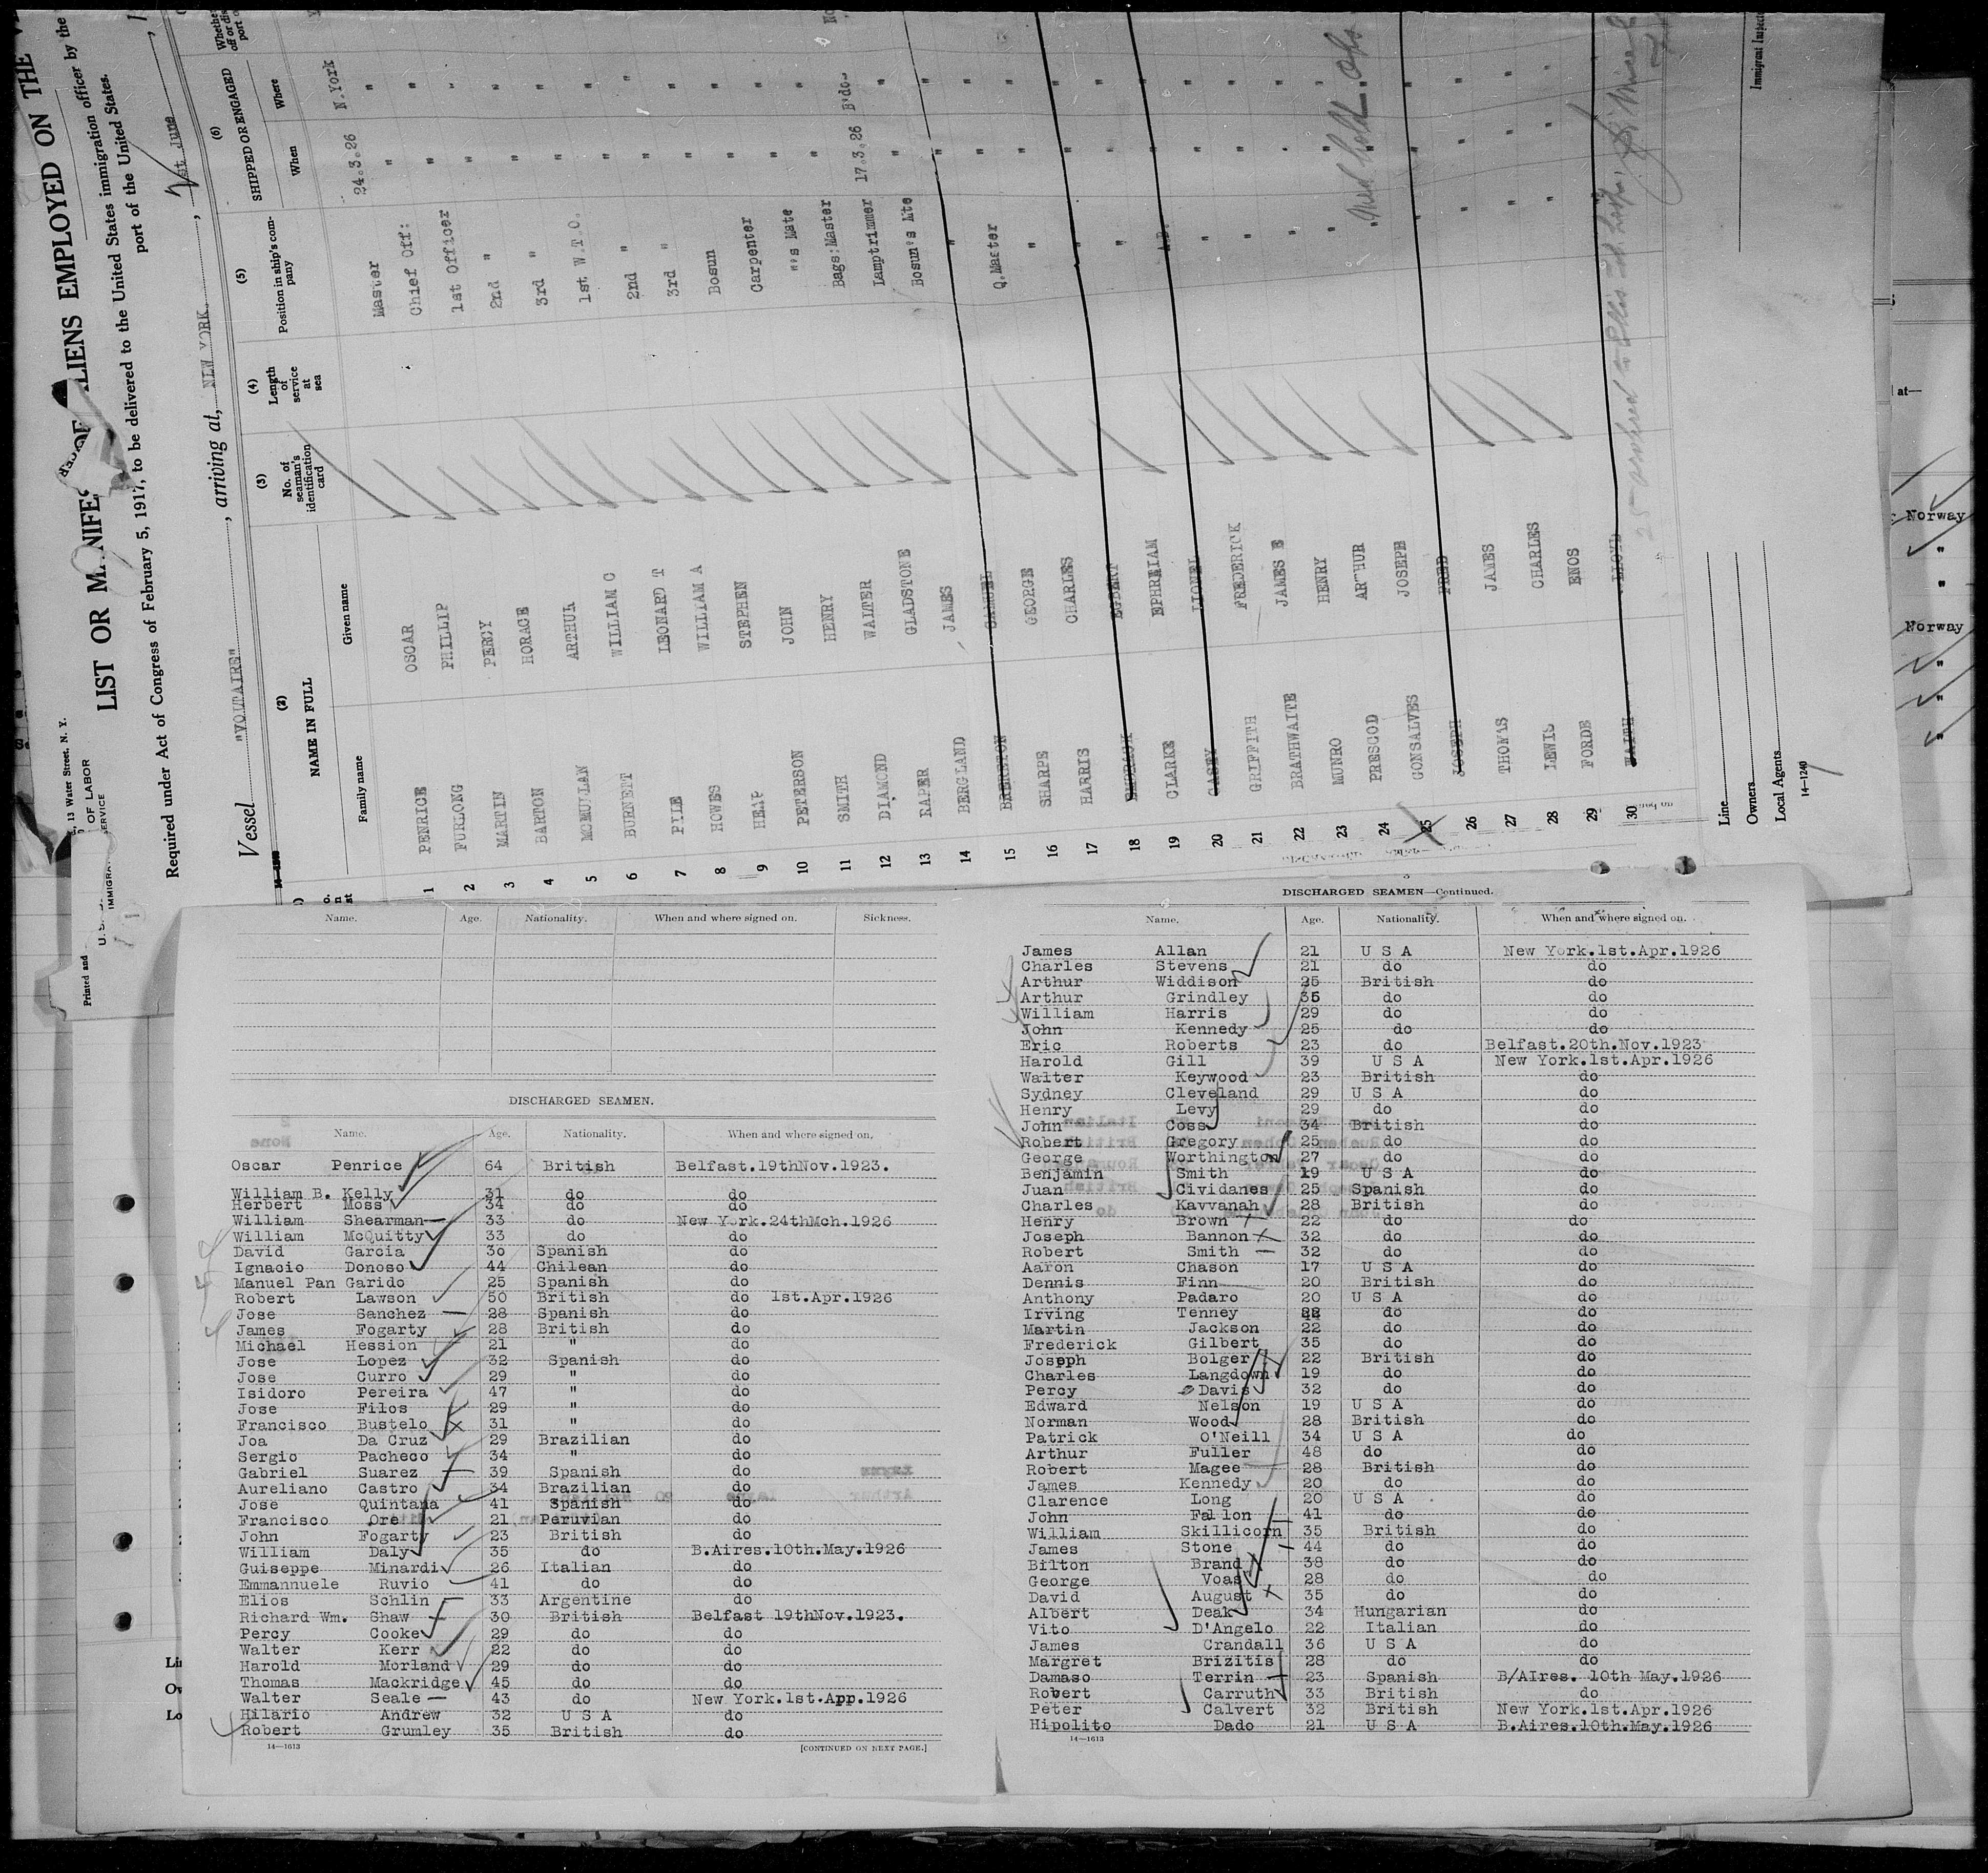 LIST OR MANIFEST ALIENS EMPLOYED ON THE
Required under Act of Congress of February 5, 1917, to be delivered to the United States immigration officer by the
port of the United States.
13 Water Street, N. Y.
OF LABOR
SERVICE
Printed and
Vessel "VOLTAIRE", arriving at, NEW YORK., 1st June
(2) (3) (4) (5) (6)
NAME IN FULL No. of seaman's identification card Length of service at sea Position in ship's company SHIPPED OR ENGAGED
Family name Given name When Where
1 PENRICE OSCAR Master 24.3.26 N.York
2 FURLONG PHILLIP Chief Off: " "
3 MARTIN PERCY 1st Officer " "
4 BARTON HORACE 2nd " " "
5 MCMULLAN ARTHUR 3rd " " "
6 BURNETT WILLIAM C 1st W.T.O. " "
7 PYLE LEONARD T 2nd " " "
8 HOWES WILLIAM A 3rd " " "
9 HEAP STEPHEN Bosun " "
10 PETERSON JOHN Carpenter " "
11 SMITH HENRY "'s Mate " "
12 DIAMOND WALTER Bags:Master " "
13 RAPER GLADSTONE Lamptrimmer 17.3.26 B'dos
14 BERGLAND JAMES Bosun's Mte " "
15 BRERETON SAMUEL " " "
16 SHARPE GEORGE Q.Master " "
17 HARRIS CHARLES " " "
18 EGBERT
19 CLARKE EPHRAIAM " " "
20 CASEY LIONEL A.B. " "
21 GRIFFITH FREDERICK " " "
22 BRATHWAITE JAMES E " " "
23 MUNRO HENRY " " "
24 PRESCOD ARTHUR " "
25 GONSALVES JOSEPH " "
26 JOSEPH FRED " "
27 THOMAS JAMES " " "
28 LEWIS CHARLES " " "
29 FORDE ENOS " " "
30 WAITH LLOYD
Line
Owners
Local Agents
14—1240
Immigrant Inspector
at—
Norway
"
"
Norway
"
"
"
Name. Age. Nationality. When and where signed on. Sickness.
DISCHARGED SEAMEN.
Name. Age. Nationality. When and where signed on.
Oscar Penrice 64 British Belfast.19thNov.1923.
William B. Kelly 31 do do
Herbert Moss 34 do do
William Shearman 33 do New York.24thMch.1926
William McQuitty 33 do do
David Garcia 30 Spanish do
Ignacio Donoso 44 Chilean do
Manuel Pan Garido 25 Spanish do
Robert Lawson 50 British do 1st.Apr.1926
Jose Sanchez 28 Spanish do
James Fogarty 28 British do
Michael Hession 21 " do
Jose Lopez 32 Spanish do
Jose Curro 29 " do
Isidoro Pereira 47 " do
Jose Filos 29 " do
Francisco Bustelo 31 " do
Joa Da Cruz 29 Brazilian do
Sergio Pacheco 34 " do
Gabriel Suarez 39 Spanish do
Aureliano Castro 34 Brazilian do
Jose Quintana 41 Spanish do
Francisco Ore 21 Peruvian do
John Fogarty 23 British do
William Daly 35 do B.Aires.10th.May.1926
Guiseppe Minardi 26 Italian do
Emmannuele Ruvio 41 do do
Elios Schlin 33 Argentine do
Richard Wm. Shaw 30 British Belfast 19thNov.1923.
Percy Cooke 29 do do
Walter Kerr 22 do do
Harold Morland 29 do do
Thomas Mackridge 45 do do
Walter Seale 43 do New York.1st.App.1926
Hilario Andrew 32 U S A do
Robert Grumley 35 British do
14—1613 [CONTINUED ON NEXT PAGE.]
3
DISCHARGED SEAMEN—Continued.
Name. Age. Nationality. When and where signed on.
James Allan 21 U S A New York.1st.Apr.1926
Charles Stevens 21 do do
Arthur Widdison 25 British do
Arthur Grindley 35 do do
William Harris 29 do do
John Kennedy 25 do do
Eric Roberts 23 do Belfast.20th.Nov.1923
Harold Gill 39 U S A New York.1st.Apr.1926
Walter Keywood 23 British do
Sydney Cleveland 29 U S A do
Henry Levy 29 do do
John Coss 34 British do
Robert Gregory 25 do do
George Worthington 27 do do
Benjamin Smith 19 U S A do
Juan Cividanes 25 Spanish do
Charles Kavvanah 28 British do
Henry Brown 22 do do
Joseph Bannon 32 do do
Robert Smith 32 do do
Aaron Chason 17 U S A do
Dennis Finn 20 British do
Anthony Padaro 20 U S A do
Irving Tenney do do
Martin Jackson 22 do do
Frederick Gilbert 35 do do
Joseph Bolger 22 British do
Charles Langdown 19 do do
Percy Davis 32 do do
Edward Nelson 19 U S A do
Norman Wood 28 British do
Patrick O'Neill 34 U S A do
Arthur Fuller 48 do do
Robert Magee 28 British do
James Kennedy 20 do do
Clarence Long 20 U S A do
John Fallon 41 do do
William Skillicorn 35 British do
James Stone 44 do do
Bilton Brand 38 do do
George Voas 28 do do
David August 35 do do
Albert Deak 34 Hungarian do
Vito D'Angelo 22 Italian do
James Crandall 36 U S A do
Margret Brizitis 28 do do
Damaso Terrin 23 Spanish B/AIres. 10th May.1926
Robert Carruth 33 British do
Peter Calvert 32 British New York.1st.Apr.1926
Hipolito Dado 21 U S A B.Aires.10th.May.1926
14—1613